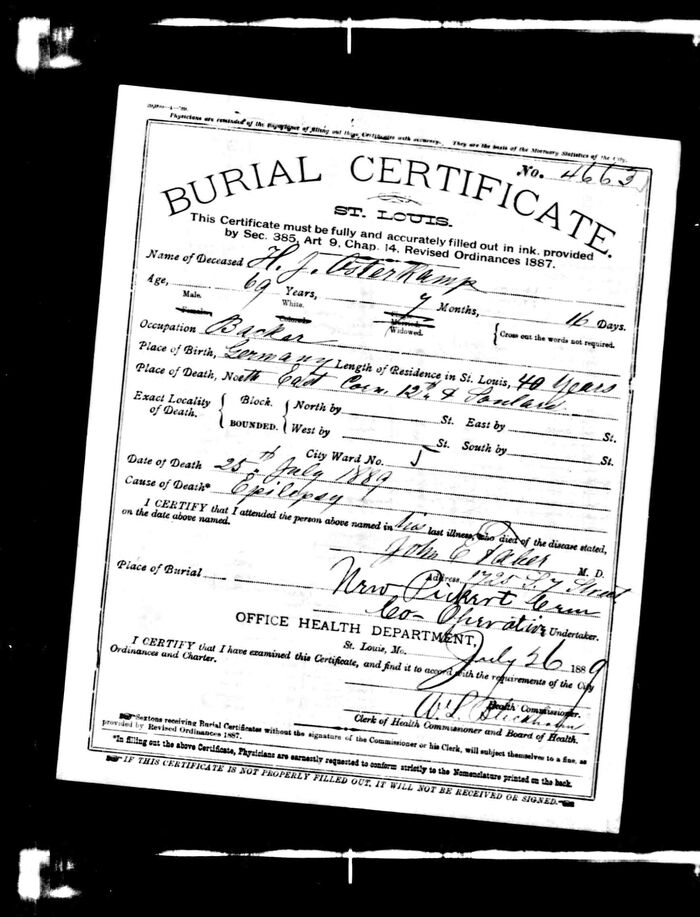 Physicians are reminded of the importance of filling out these Certificates with accuracy. They are the basis of the Mortuary Statistics of the City.
No. 4663
BURIAL CERTIFICATE.
ST. LOUIS.
This Certificate must be fully and accurately filled out in ink, provided
by Sec. 385, Art 9, Chap. 14, Revised Ordinances 1887.
Name of Deceased H. J. Osterkamp
Age, 69 Years, 7 Months, 16 Days.
Male. White. Widowed. {Cross out the words not required.
Female. Colored.
Occupation Backer
Place of Birth, Germany Length of Residence in St. Louis, 40 Years
Place of Death, North East Corn. 12th & Soulard
Exact Locality of Death. { Block. BOUNDED. { North by St. East by St.
West by St. South by St.
City Ward No. 5
Date of Death 25th July 1889
Cause of Death* Epilepsy
I CERTIFY that I attended the person above named in his last illness, who died of the disease stated,
on the date above named.
John E Faber M. D.
Address, 1725 S. 7 Street
Place of Burial New Pickert Cem
Co-Operative Undertaker.
OFFICE HEALTH DEPARTMENT,
St. Louis, Mo. July 26 1889
I CERTIFY that I have examined this Certificate, and find it to accord with the requirements of the City
Ordinances and Charter.
Health Commissioner.
Clerk of Health Commissioner and Board of Health.
Sextons receiving Burial Certificates without the signature of the Commissioner or his Clerk, will subject themselves to a fine, as
provided by Revised Ordinances 1887.
*In filling out the above Certificate, Physicians are earnestly requested to conform strictly to the Nomenclature printed on the back.
IF THIS CERTIFICATE IS NOT PROPERLY FILLED OUT, IT WILL NOT BE RECEIVED OR SIGNED.